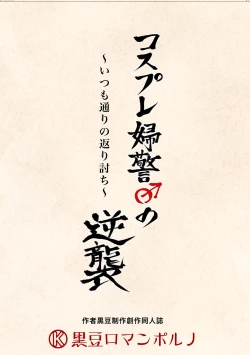 コスプレ婦警⚣の
逆襲
～いつも通りの返り討ち～
作者黒豆制作創作同人誌
K 黒豆ロマンポルノ